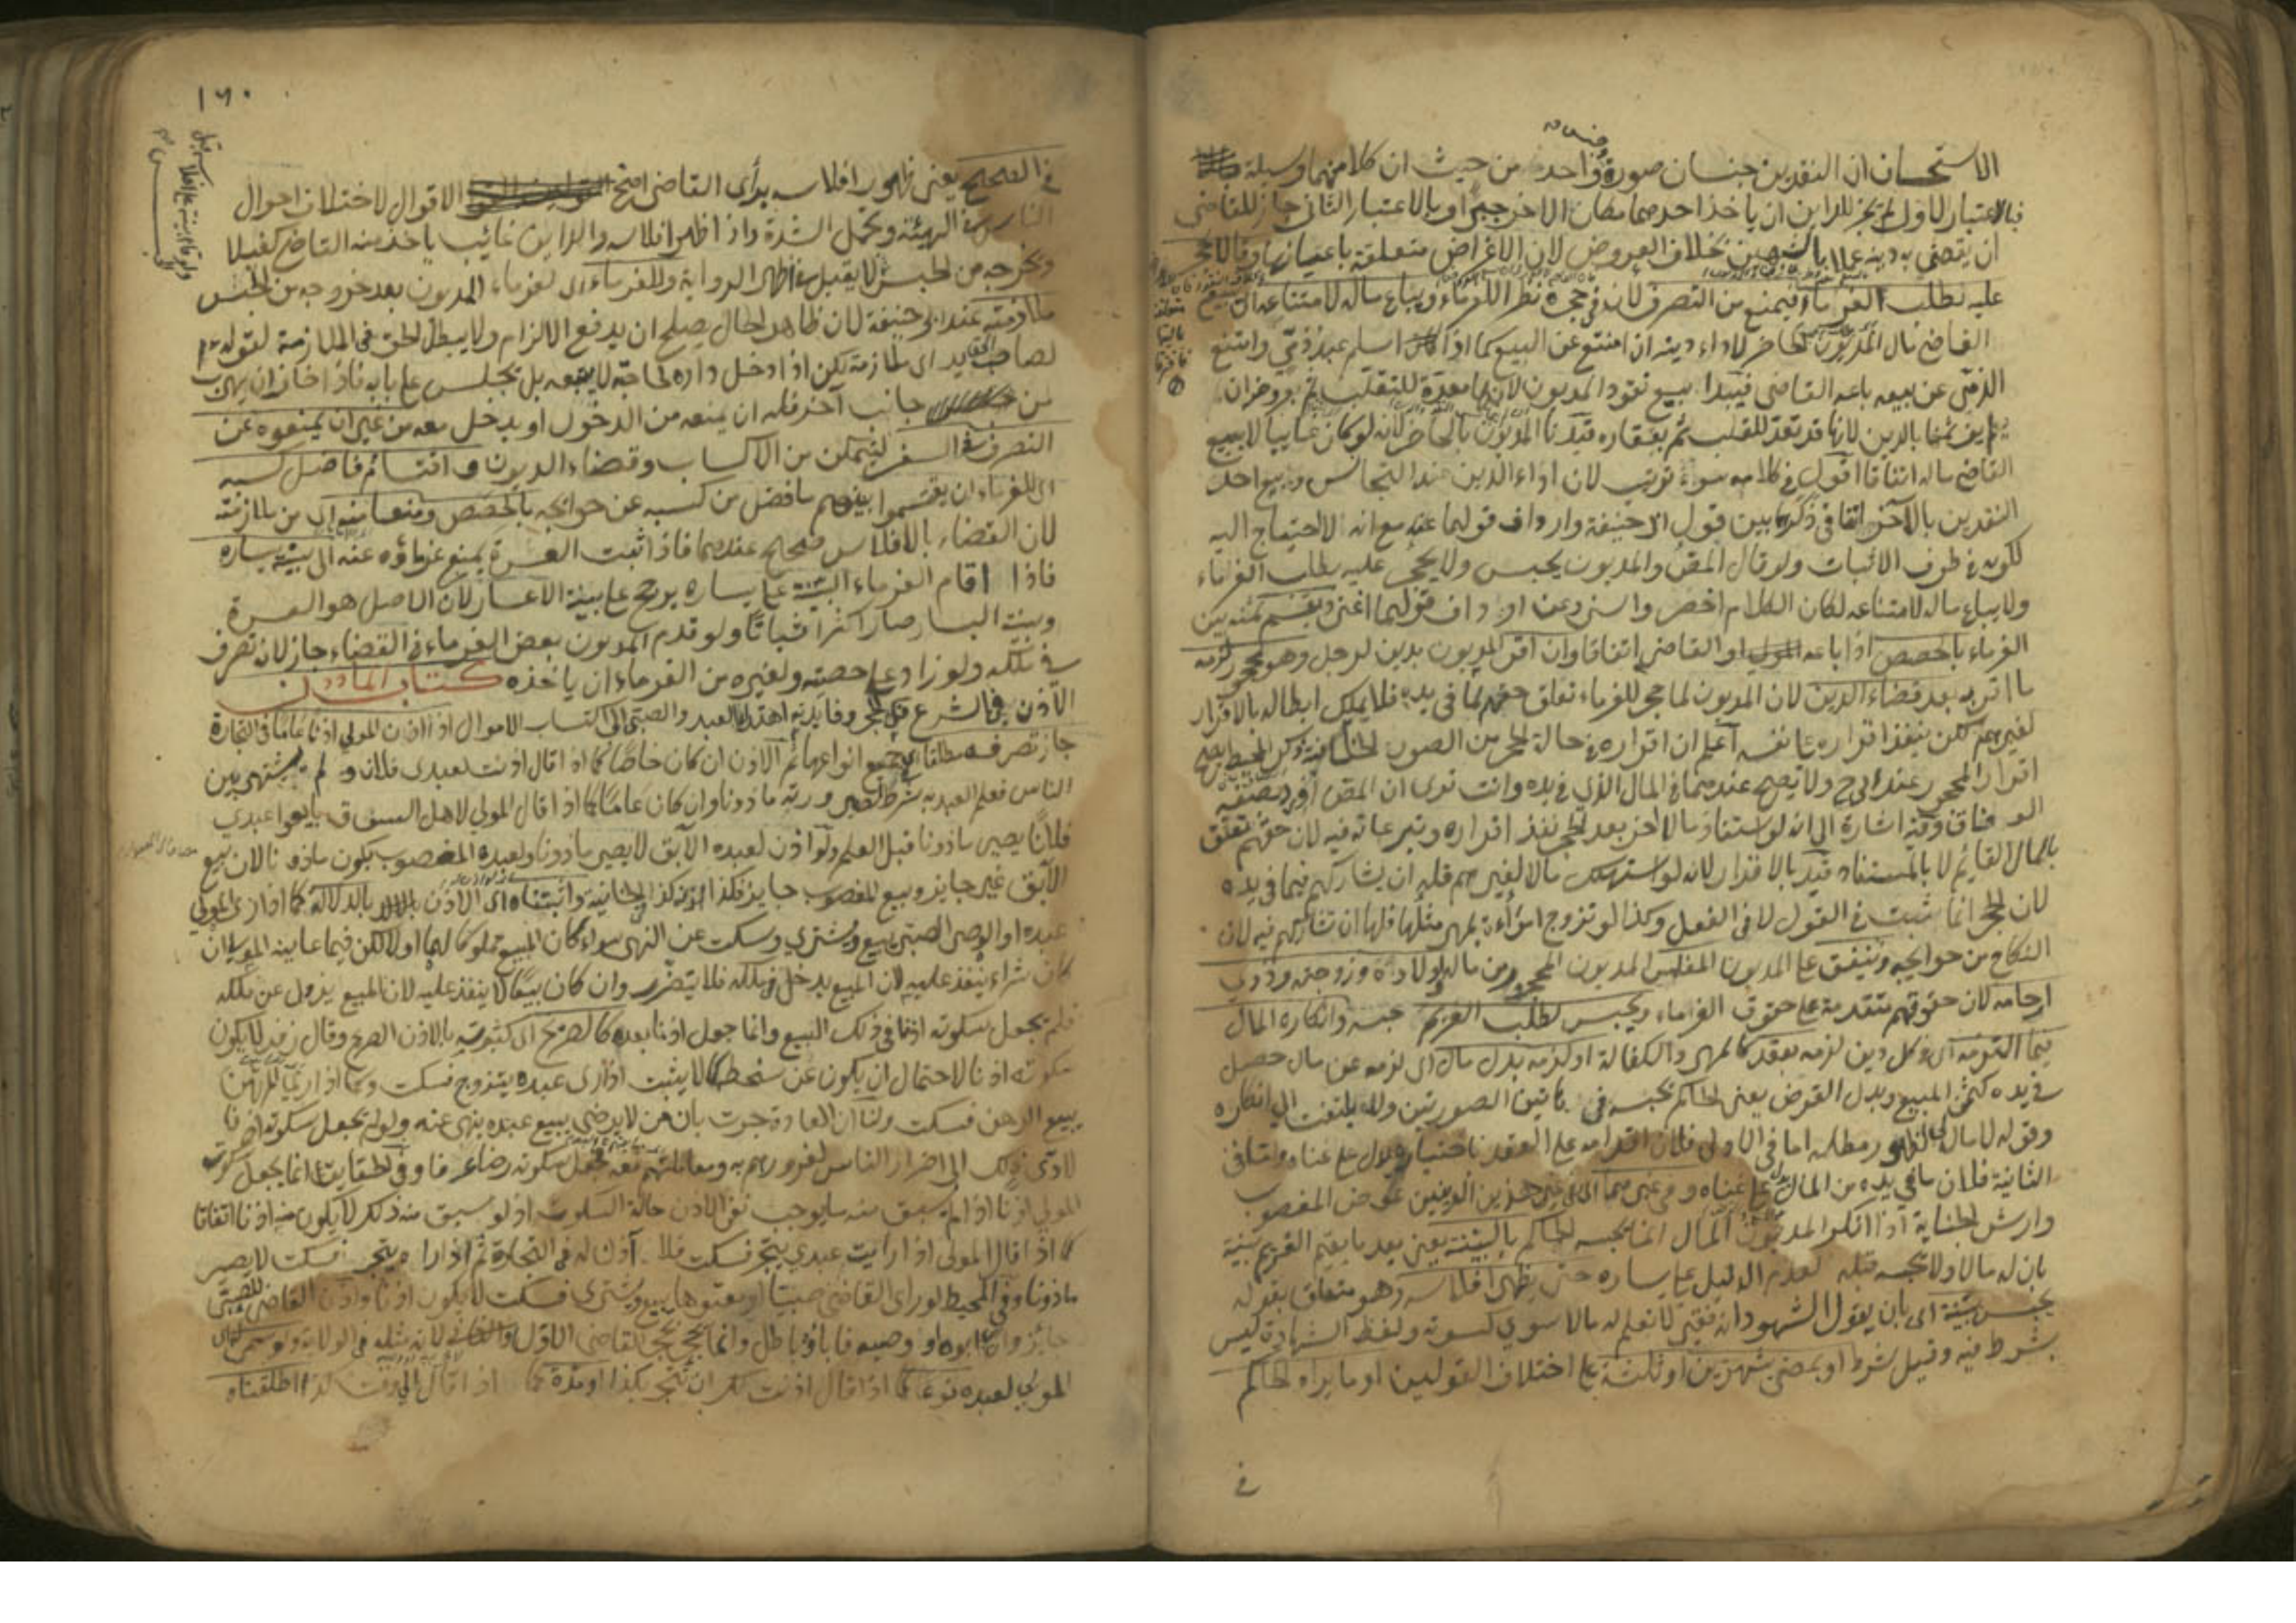 الاستحسان ان النقدين جنسان صورة وجنس واحد من حيث ان كلا منهما وسيلة
فبالاعتبار الاول لم يجز للداين ان ياخذ احدهما مكان الاخر جبرا وبالاعتبار الثاني جاز للقاضي
ان يقضي به دينه عملا بالشبهين بخلاف العروض لان الاغراض متعلقة باعيانها وقالا يحجر
عليه بطلب الغرماء فيمنع من التصرف لان في حجره نظرا للغرماء ويباع ماله لامتناعه اي يبيع
القاضي مال المديون الحاضر لاداء دينه ان امتنع عن البيع كما اذا اسلم عبد ذمي وامتنع
الذمي عن بيعه باعه القاضي فيبدأ ببيع نقود المديون لانها معدة للتقلب ثم بعروضه ان
لم يف ثمنها بالدين لانها قد تعد للتقلب ثم بعقاره قيدنا المديون بالحاضر لانه لو كان غايبا لا يبيع
القاضي ماله اتفاقا اقول في كلامه سوء ترتيب لان اداء الدين عند التجانس وبيع احد
النقدين بالآخر اتفاقي ذكرهما بين قول ابي حنيفة وارداف قولهما عنه مع انه لا احتياج اليه
لكونه في طرف الاثبات ولو قال المص والمديون يحبس ولا يحجر عليه بطلب الغرماء
ولا يباع ماله لامتناعه لكان الكلام اخصر واستردعن ارداف قولهما اغنى ويقسم ثمنه بين
الغرماء بالحصص اذا باعه المولى او القاضي اتفاقا وان اقر المديون بدين لرجل وهو محجور لزمه
ما اقر به بعد قضاء الدين لان المديون لما حجر للغرماء تعلق حقهم بما في يده فلا يملك ابطاله بالاقرار
لغيرهم لكن ينفذ اقراره على نفسه اعلم ان اقراره في حالة الحجر من الصور الخلافية وذكر في المحيط يصح
اقرار المحجور عند ابي ح ولا يصح عندهما في المال الذي في يده وانت ترى ان المص اورده بصيغة
الوفاق وفيه اشارة الى انه لو استفاد مالا اخر بعد الحجر نفذ اقراره وتبرعاته فيه لان حقهم تعلق
بالمال القايم لا بالمستفاد قيد بالاقرار لانه لو استهلك مالا لغيرهم فله ان يشاركهم فيما في يده
لان الحجر انما يثبت في القول لا في الفعل وكذا لو تزوج امرأة بمهر مثلها فلها ان تشاركهم فيه لان
النكاح من حوايجه وينفق على المديون المفلس المديون المحجور من ماله واولاده وزوجته وذوي
ارحامه لان حقوقهم متقدمة على حقوق الغرماء ويحبس بطلب الغريم حبسه وانكاره المال
فيما التزمه اي في كل دين لزمه بعقد كالمهر والكفالة او لزمه بدل مال اي لزمه عن مال حصل
في يده كثمن المبيع وبدل القرض يعني الحاكم يحبسه في هاتين الصورتين ولا يلتفت الى انكاره
وقوله لا مال لي لظهور مطله اما في الاولى فلان اقدامه على العقد باختياره يدل على غناه واما في
الثانية فلان ما في يده من المال يدل على غناه وفي غيرهما اي في غير هذين الدينين كعوض المغصوب
وارش الجناية اذا انكر المديون المال انما يحبسه الحاكم بالبينة يعني بعد ما يقيم الغريم بينة
بان له مالا ولا يحبسه قبله لعدم الدليل على يساره حتى يظهر افلاسه وهو متعلق بقوله
يحبس ببينة اي بان يقول الشهود انه فقير لا نعلم له مالا سوى كسوته ولفظ الشهادة ليس
بشرط فيه وقيل شرط او بمضي شهرين او ثلثة على اختلاف القولين او ما يراه الحاكم
في
١٦٠
في الصحيح يعني ظهور افلاسه برأى القاضي اصح الاقوال لاختلاف احوال
الناس في الهيئة وتحمل الشدة واذا ظهر افلاسه والداين غائب ياخذ منه القاضي كفيلا
ويخرجه من الحبس لا يقبل في ظاهر الرواية وللغرماء اي لغرماء المديون بعد خروجه من الحبس
ملازمته عند ابي حنيفة لان ظاهر الحال يصلح ان يدفع الالزام ولا يبطل الحق في الملازمة لقوله عم
لصاحب الحق يد اي ملازمة لكن اذا دخل داره لحاجته لا يتبعه بل يجلس على بابه فاذا خاف ان يهرب
من جانب آخر فله ان يمنعه من الدخول او يدخل معه من غير ان يمنعوه عن
التصرف والسفر ليتمكن من الاكساب وقضاء الديون واقتسام فاضل كسبه
اي للغرماء ان يقتسموا بينهم ما فضل من كسبه عن حوائجه بالحصص ومنعا منه اي من ملازمته
لان القضاء بالافلاس صحيح عندهما فاذا ثبت العسرة يمنع غرماؤه عنه الى بينة يساره
فاذا اقام الغرماء البينة على يساره يرجح على بينة الاعسار لان الاصل هو العسرة
وبينة اليسار صار اكثر اثباتا ولو قدم المديون بعض الغرماء في القضاء جاز لانه تصرف
في ملكه ولو زاد على حصته ولغيره من الغرماء ان ياخذه كتاب الماذون
الاذن في الشرع فك الحجر وفايدته اهتداء العبد والصبي الى اكتساب الاموال اذا اذن المولى اذنا عاما في التجارة
جاز تصرفه مطلقا في جميع انواعها ثم الاذن ان كان خاصا كما اذا قال اذنت لعبدي فلان ولم يشتهر بين
الناس فعلم العبد به شرط لصيرورته ماذونا وان كان عاما كما اذا قال المولى لاهل السوق بايعوا عبدي
فلانا يصير ماذونا قبل العلم ولو اذن لعبده الآبق لا يصير ماذونا ولعبده المغصوب يكون ماذونا لان بيع
الآبق غير جايز وبيع المغصوب جايز فكذا الاذن كذا في الخانية واثبتناه اي الاذن بالدلالة كما اذا رى المولى
عبده او الوصى الصبي يبيع ويشتري وسكت عن النهى سواء كان المبيع مملوكا لهما او لا لكن فيما عاينه المولى ان
كان شراء ينفذ عليه لان المبيع يدخل في ملكه فلا يتضرر وان كان بيعا لا ينفذ عليه لان المبيع يزول عن ملكه
فلم يجعل سكوته اذنا في ذلك البيع وانما جعل اذنا بعده كالصريح اي كثبوته بالاذن الصريح وقال زفر لا يكون
سكوته اذنا لاحتمال ان يكون عن سخط كما لا يثبت اذا رى عبده يتزوج فسكت وكما اذا رى المرتهن
يبيع الرهن فسكت ولنا ان العادة جرت بان من لا يرضى ببيع عبده ينهى عنه ولو لم يجعل سكوته اذنا
لادى ذلك الى اضرار الناس لغرورهم به ومعاملتهم معه فجعل سكوته رضاء عرفا وفي الحقايق انما يجعل سكوت
المولى اذنا اذا لم يسبق منه ما يوجب نفى الاذن حالة السكوت اذ لو سبق منه ذلك لا يكون منه اذنا اتفاقا
كما اذا قال المولى اذا رايت عبدي يتجر فسكت فلا آذن له في التجارة ثم اذا راه يتجر فسكت لا يصير
ماذونا وفي المحيط لو راى القاضي صبيا او معتوها يبيع ويشتري فسكت لا يكون اذنا واذن القاضي للصبي
جائز وان ابوه او وصيه فاباؤه باطل وانما يحجر بحجر القاضي الاول لانه مثله في الولاية ولو سمى
المولى لعبده نوعا كما اذا قال اذنت لك ان تتجر بكذا او مدة كما اذا قال الى وقت كذا اطلقناه